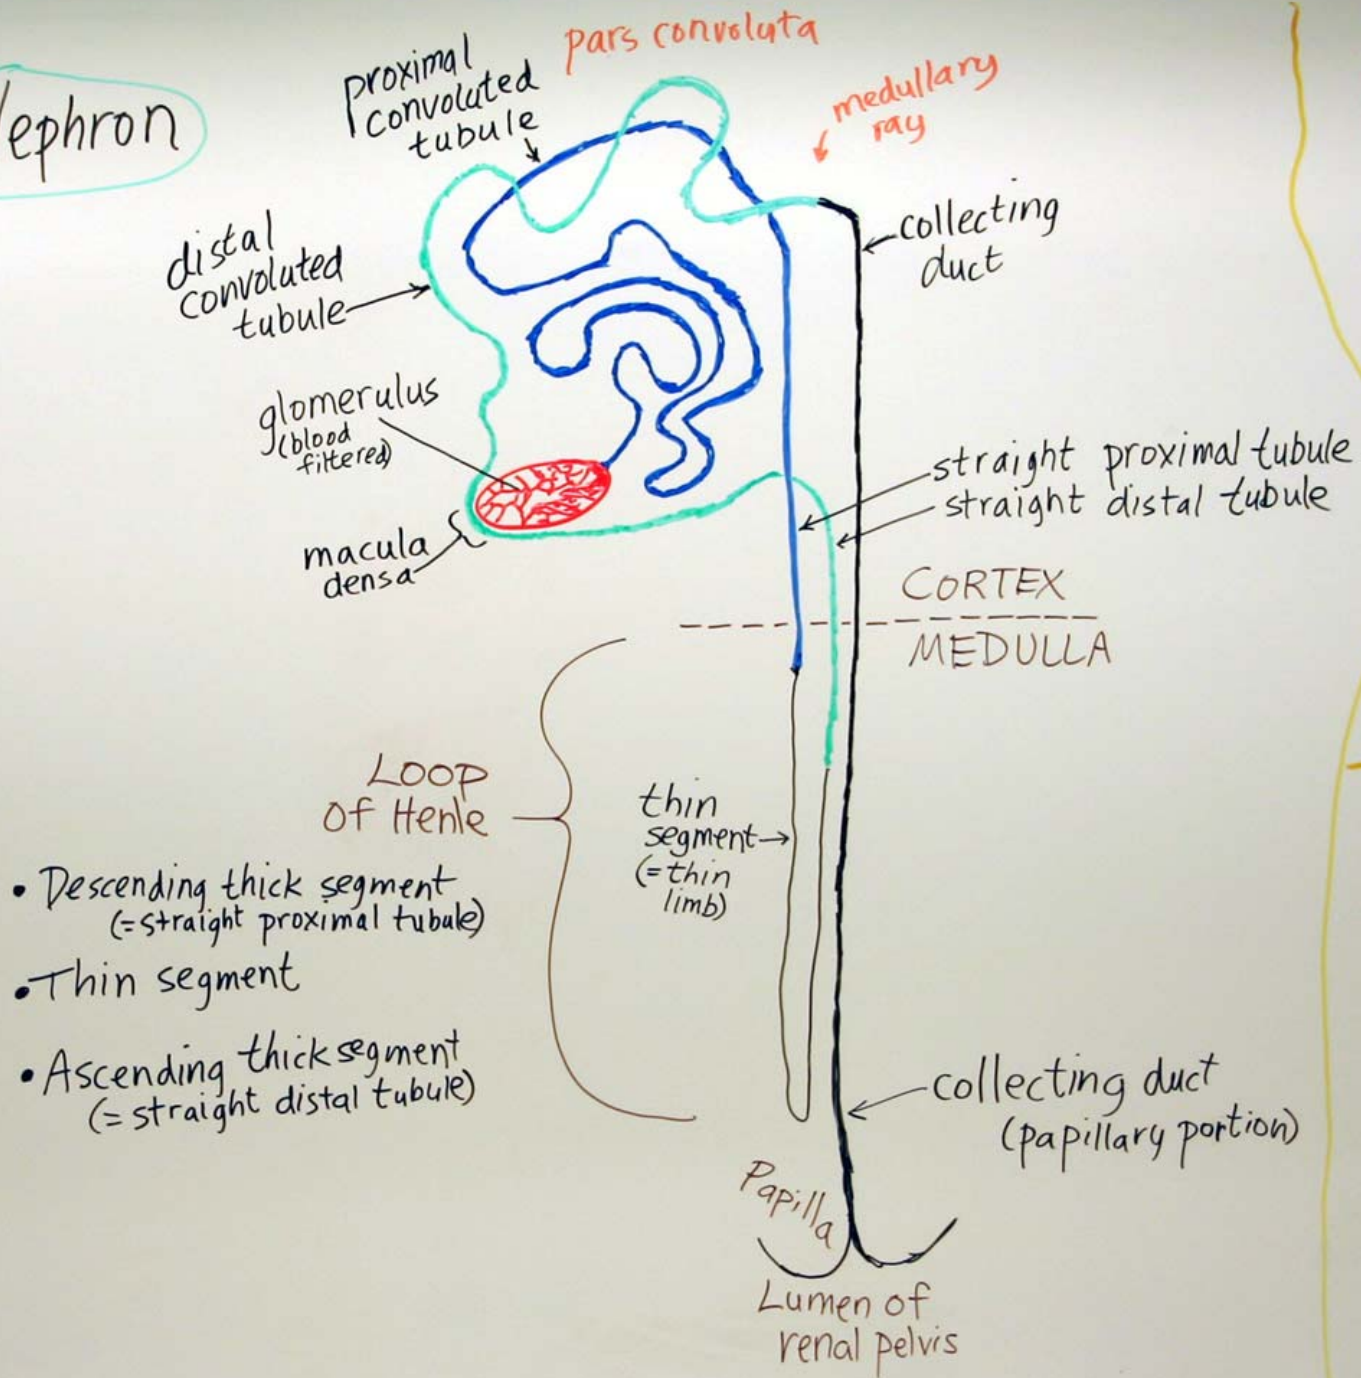 ephron
pars convoluta
proximal
convoluted
tubule
medullary
ray
distal
convoluted
tubule
collecting
duct
glomerulus
(blood
filtered)
macula
densa
straight proximal tubule
straight distal tubule
CORTEX
MEDULLA
LOOP
Of Henle
thin
segment
(=thin
limb)
• Descending thick segment
(=straight proximal tubule)
• Thin segment
• Ascending thick segment
(= straight distal tubule)
collecting duct
(papillary portion)
Papilla
Lumen of
renal pelvis